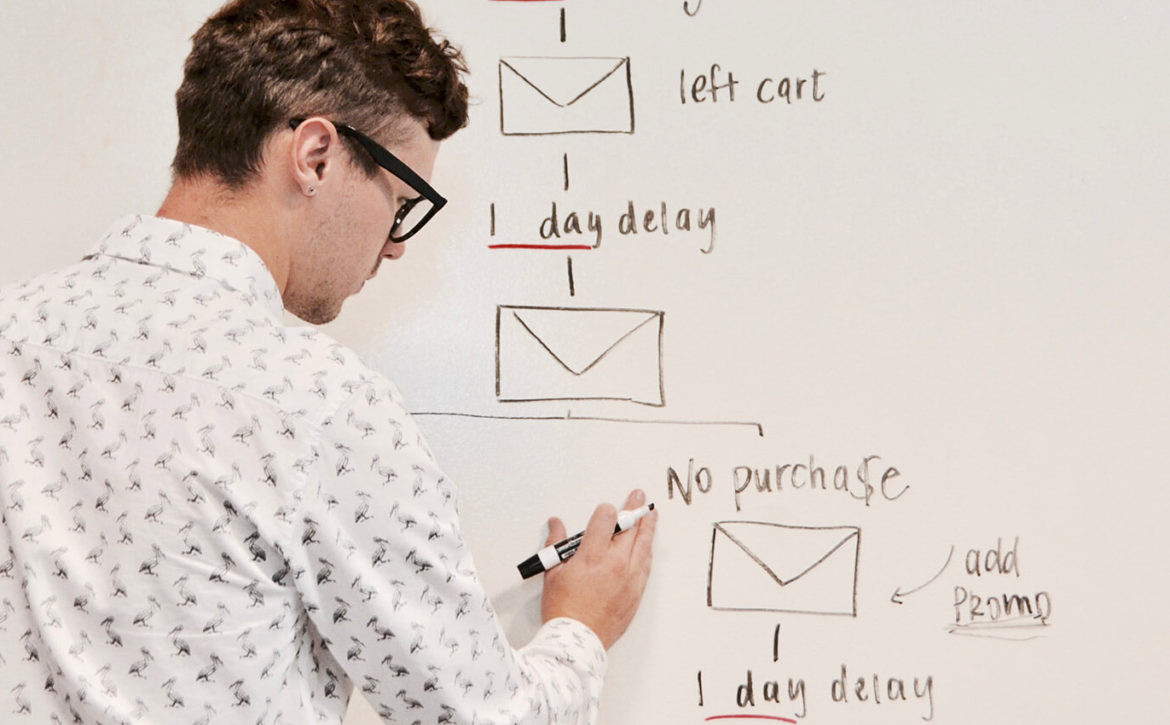 left cart
1 day delay
No purchase
add
PROMO
1 day delay